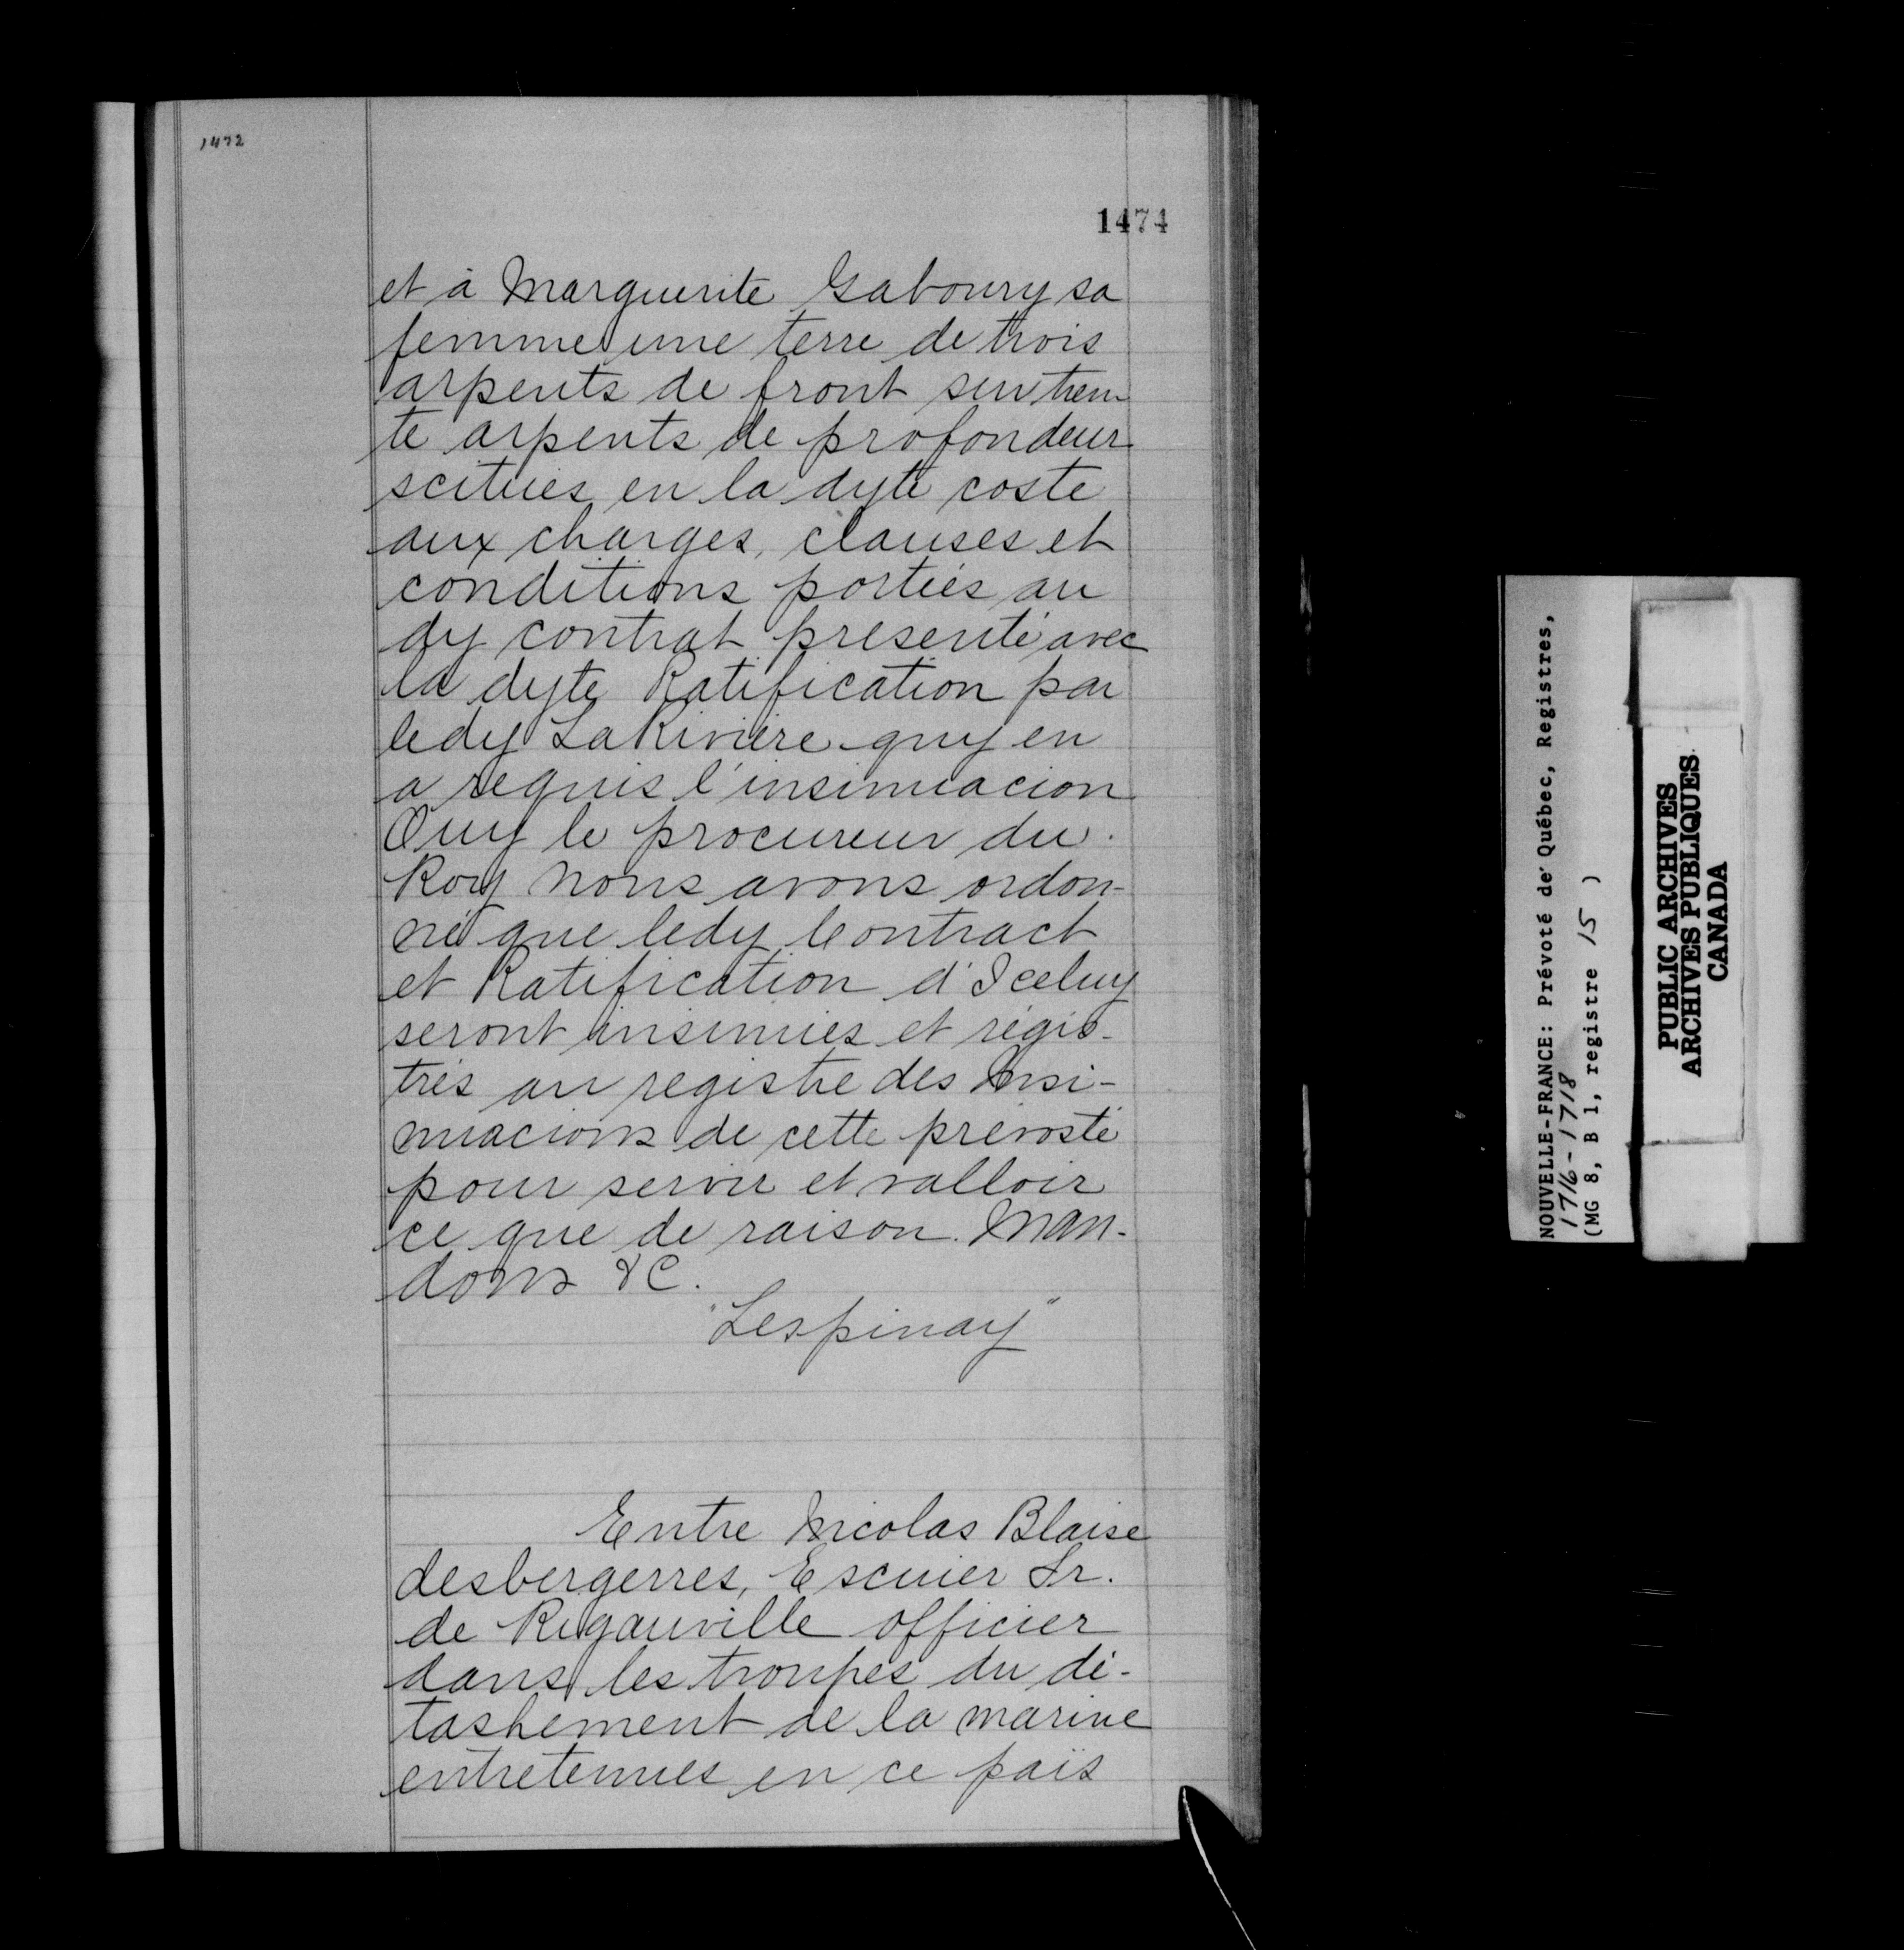 1472
1474
et à Marguerite Gaboury sa
femme une terre de trois
arpents de front sur tren-
te arpents de profondeur
scitués en la dyte coste
aux charges, clauses et
conditions portiés au
dy contrat presenté avec
la dyte Ratification par
ledy LaRivière quy en
a requis l'insinuacion
Ouy le procureur du
Roy Nous avons ordon-
né que ledy Contract
et Ratification d'Iceluy
seront insinués et régis-
trés au registre des Insi-
nuacions de cette prévosté
pour servir et valloir
ce que de raison. Man-
dons &C.
"Lespinay"
Entre Nicolas Blaise
desbergerres, Escuier Sr.
de Rigauville officier
dans les troupes du dé-
tashement de la marine
entretenues en ce païs
NOUVELLE-FRANCE: Prévoté de Québec, Registres,
1716-1718
(MG 8, B 1, registre 15 )
PUBLIC ARCHIVES
ARCHIVES PUBLIQUES
CANADA